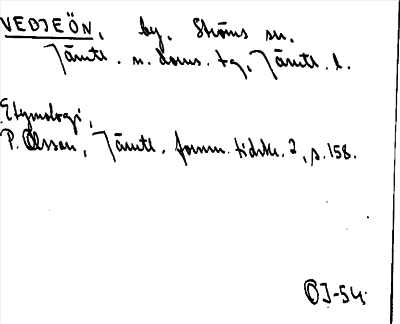 VEDJEÖN, by, Ströms sn,
Jämtl. n. doms. tg, Jämtl. l.
Etymologi,
P. Olsson, Jämtl. fornm. tidskr. 2, s. 158.
OJ-54.